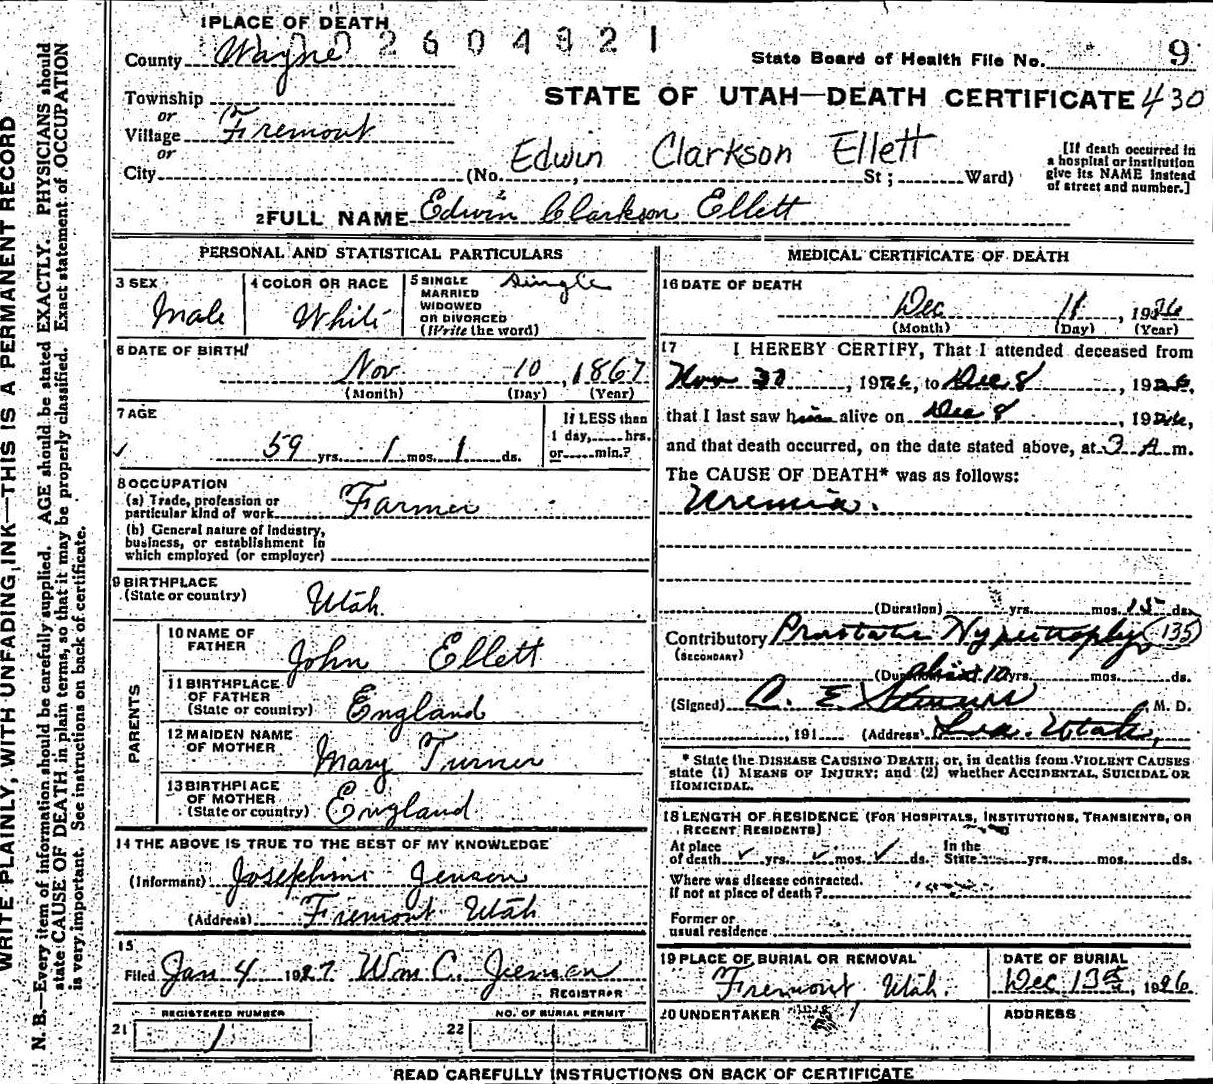 1 PLACE OF DEATH
02604821
County Wayne
State Board of Health File No. 9
Township
or
Village Fremont
or
City
STATE OF UTAH—DEATH CERTIFICATE 430
Edwin Clarkson Ellett
(No. St; Ward)
[If death occurred in
a hospital or institution
give its NAME instead
of street and number.]
2 FULL NAME Edwin Clarkson Ellett
PERSONAL AND STATISTICAL PARTICULARS
3 SEX
Male
4 COLOR OR RACE
White
5 SINGLE
MARRIED
WIDOWED
OR DIVORCED
(Write the word)
Single
6 DATE OF BIRTH
Nov 10, 1867
(Month) (Day) (Year)
7 AGE
59 yrs. 1 mos. 1 ds.
If LESS than
1 day, hrs.
or min.?
8 OCCUPATION
(a) Trade, profession or
particular kind of work Farmer
(b) General nature of industry,
business, or establishment in
which employed (or employer)
9 BIRTHPLACE
(State or country) Utah.
PARENTS
10 NAME OF
FATHER John Ellett
11 BIRTHPLACE
OF FATHER
(State or country) England
12 MAIDEN NAME
OF MOTHER Mary Turner
13 BIRTHPLACE
OF MOTHER
(State or country) England
14 THE ABOVE IS TRUE TO THE BEST OF MY KNOWLEDGE
(Informant) Josephine Jenson
(Address) Fremont Utah
15
Filed Jan 4 1927 Wm C. Jensen
REGISTRAR
REGISTERED NUMBER
21 1
NO. OF BURIAL PERMIT
22
MEDICAL CERTIFICATE OF DEATH
16 DATE OF DEATH
Dec 11, 1926
(Month) (Day) (Year)
17 I HEREBY CERTIFY, That I attended deceased from
Nov 30, 1926, to Dec 8, 1926,
that I last saw him alive on Dec 8, 1926,
and that death occurred, on the date stated above, at 3 A m.
The CAUSE OF DEATH* was as follows:
Uremia.
(Duration) yrs. mos. 15 ds.
Contributory Prostate Hypertrophy 135
(SECONDARY)
(Duration) about 10 yrs. mos. ds.
(Signed) C. E. M. D.
, 191 (Address) Loa. Utah,
* State the DISEASE CAUSING DEATH, or, in deaths from VIOLENT CAUSES
state (1) MEANS OF INJURY; and (2) whether ACCIDENTAL, SUICIDAL OR
HOMICIDAL.
18 LENGTH OF RESIDENCE (FOR HOSPITALS, INSTITUTIONS, TRANSIENTS, OR
RECENT RESIDENTS)
At place
of death yrs. mos. ds.
In the
State yrs. mos. ds.
Where was disease contracted.
If not at place of death?
Former or
usual residence
19 PLACE OF BURIAL OR REMOVAL
Fremont Utah.
DATE OF BURIAL
Dec 13, 1926
20 UNDERTAKER
ADDRESS
READ CAREFULLY INSTRUCTIONS ON BACK OF CERTIFICATE
WRITE PLAINLY, WITH UNFADING INK—THIS IS A PERMANENT RECORD
N. B.—Every item of information should be carefully supplied. AGE should be stated EXACTLY. PHYSICIANS should
state CAUSE OF DEATH in plain terms, so that it may be properly classified. Exact statement of OCCUPATION
is very important. See instructions on back of certificate.